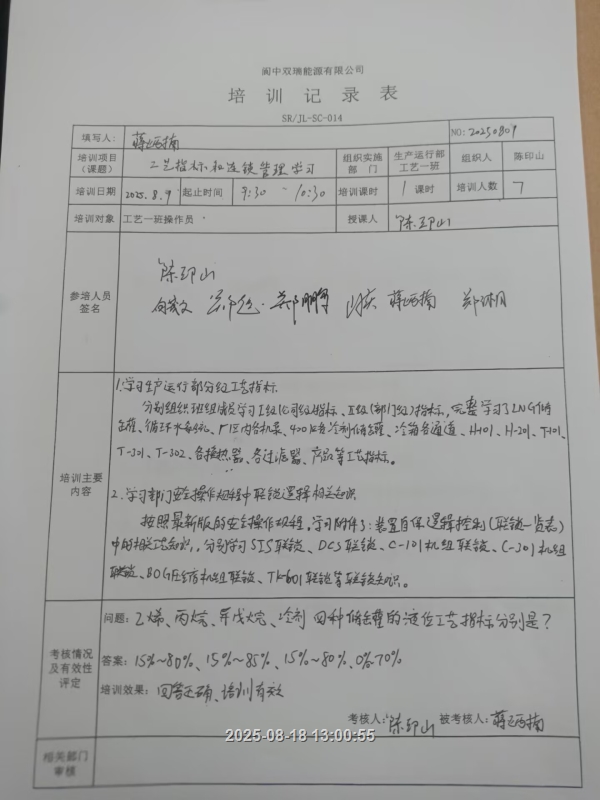 阆中双瑞能源有限公司
培训记录表
SR/JL-SC-014
填写人: NO: 20250809
培训项目（课题） 工艺指标和连锁管理学习 组织实施部门 生产运行部工艺一班 组织人 陈印山
培训日期 2025.8.9 起止时间 9:30 ~ 10:30 培训课时 1课时 培训人数 7
培训对象 工艺一班操作员 授课人 陈印山
参培人员签名
陈印山
郑湘
培训主要内容
1.学习生产运行部分级工艺指标.
分别组织班组成员学习I级(公司级)指标、II级(部门级)指标,完整学习了LNG储
罐、循环水、厂区内各机泵、400冷剂储罐、冷箱各通道、H-101、H-201、T-101、
T-301、T-302、各换热器、各过滤器、产品等工艺指标。
2.学习部门安全操作规程中联锁逻辑相关知识
按照最新版的安全操作规程,学习附件3:装置自保逻辑控制(联锁一览表)
中的相关知识,分别学习SIS联锁、DCS联锁、C-101机组联锁、C-301机组
联锁、BOG压缩机组联锁、TK-601联锁等联锁知识。
考核情况及有效性评定
问题: 乙烯、丙烷、异戊烷、冷剂四种储罐的液位工艺指标分别是?
答案: 15%~80%、15%~85%、15%~80%、0%~70%
培训效果: 回答正确、培训有效
考核人: 陈印山 被考核人:
2025-08-18 13:00:55
相关部门审核